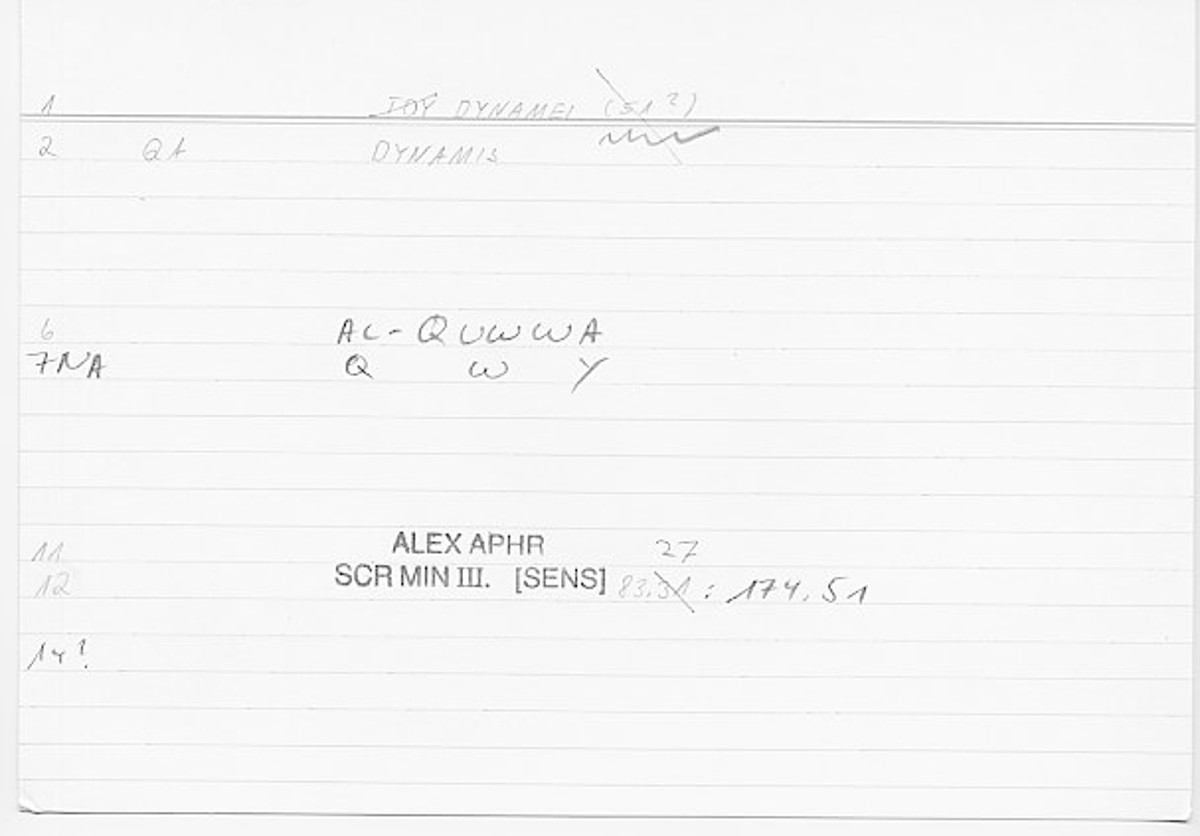 1 TOY DYNAMEI (51?)
2 QA DYNAMIS
6 AL-QUWWA
7NA Q W Y
11 ALEX APHR 27
12 SCR MIN III. [SENS] 83.31 : 174.51
14?